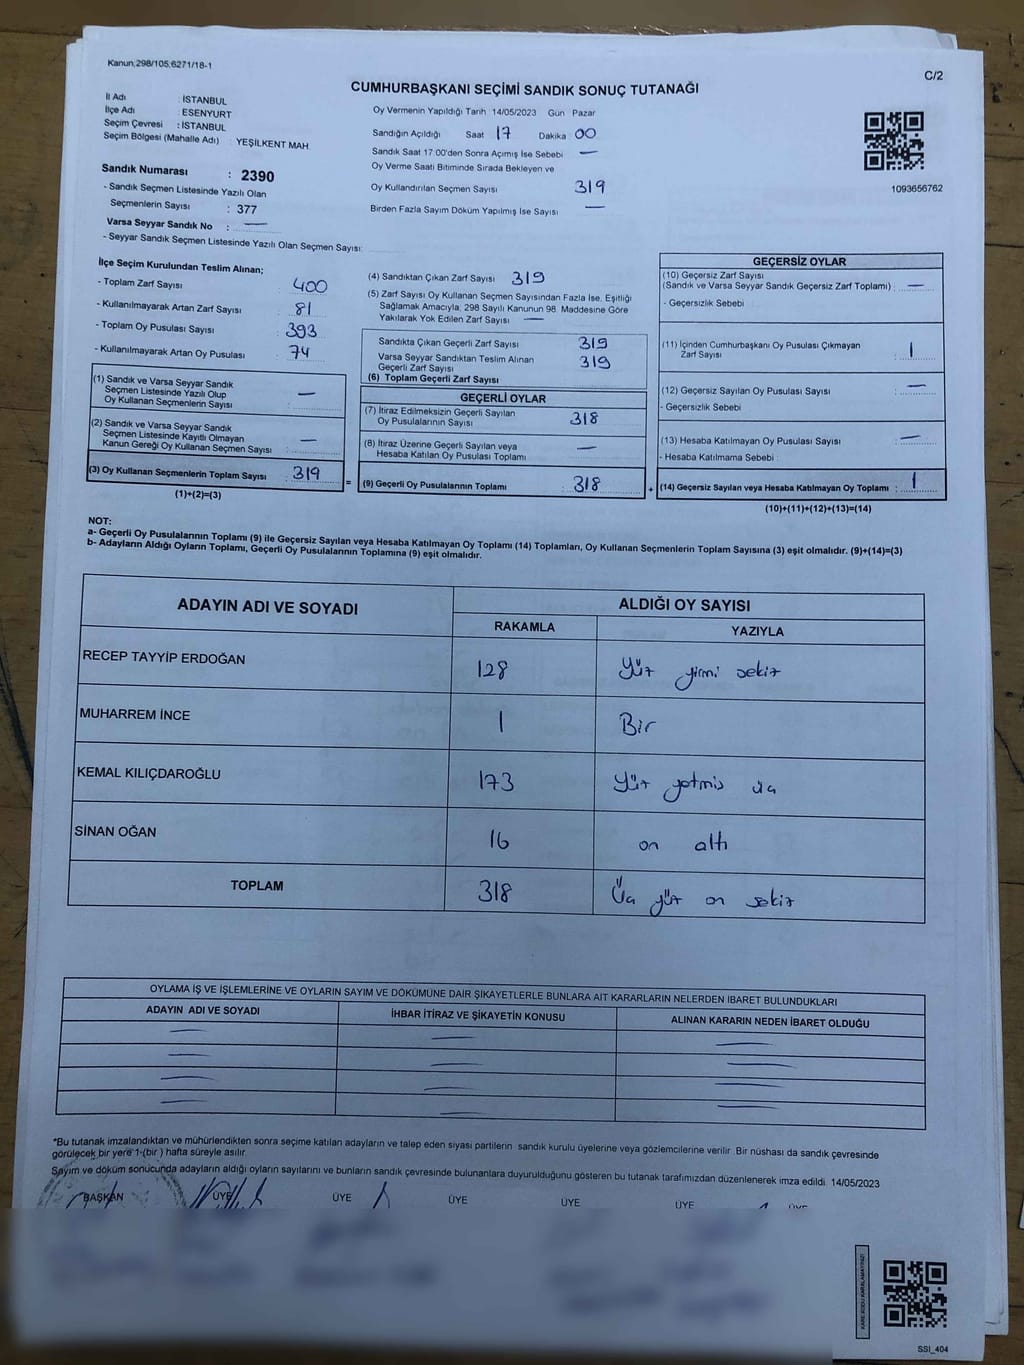 Kanun,298/105,6271/18-1
C/2
CUMHURBAŞKANI SEÇİMİ SANDIK SONUÇ TUTANAĞI
İl Adı : İSTANBUL
İlçe Adı : ESENYURT
Seçim Çevresi : İSTANBUL
Seçim Bölgesi (Mahalle Adı) : YEŞİLKENT MAH
Sandık Numarası : 2390
- Sandık Seçmen Listesinde Yazılı Olan
Seçmenlerin Sayısı : 377
Varsa Seyyar Sandık No : —
- Seyyar Sandık Seçmen Listesinde Yazılı Olan Seçmen Sayısı:
Oy Vermenin Yapıldığı Tarih 14/05/2023 Gün Pazar
Sandığın Açıldığı Saat 17 Dakika : 00
Sandık Saat 17:00'den Sonra Açımış İse Sebebi —
Oy Verme Saati Bitiminde Sırada Bekleyen ve
Oy Kullandırılan Seçmen Sayısı 319
Birden Fazla Sayım Döküm Yapılmış İse Sayısı —
1093656762
İlçe Seçim Kurulundan Teslim Alınan;
- Toplam Zarf Sayısı : 400
- Kullanılmayarak Artan Zarf Sayısı : 81
- Toplam Oy Pusulası Sayısı : 393
- Kullanılmayarak Artan Oy Pusulası : 74
(1) Sandık ve Varsa Seyyar Sandık
Seçmen Listesinde Yazılı Olup
Oy Kullanan Seçmenlerin Sayısı : —
(2) Sandık ve Varsa Seyyar Sandık
Seçmen Listesinde Kayıtlı Olmayan
Kanun Gereği Oy Kullanan Seçmen Sayısı : —
(3) Oy Kullanan Seçmenlerin Toplam Sayısı : 319
(1)+(2)=(3)
(4) Sandıktan Çıkan Zarf Sayısı : 319
(5) Zarf Sayısı Oy Kullanan Seçmen Sayısından Fazla İse, Eşitliği
Sağlamak Amacıyla; 298 Sayılı Kanunun 98. Maddesine Göre
Yakılarak Yok Edilen Zarf Sayısı : —
Sandıkta Çıkan Geçerli Zarf Sayısı : 319
Varsa Seyyar Sandıktan Teslim Alınan
Geçerli Zarf Sayısı : 319
(6) Toplam Geçerli Zarf Sayısı
GEÇERLİ OYLAR
(7) İtiraz Edilmeksizin Geçerli Sayılan
Oy Pusulalarının Sayısı : 318
(8) İtiraz Üzerine Geçerli Sayılan veya
Hesaba Katılan Oy Pusulası Toplamı : —
= (9) Geçerli Oy Pusulalarının Toplamı : 318
GEÇERSİZ OYLAR
(10) Geçersiz Zarf Sayısı
(Sandık ve Varsa Seyyar Sandık Geçersiz Zarf Toplamı) : —
- Geçersizlik Sebebi :
(11) İçinden Cumhurbaşkanı Oy Pusulası Çıkmayan
Zarf Sayısı : 1
(12) Geçersiz Sayılan Oy Pusulası Sayısı : —
- Geçersizlik Sebebi
(13) Hesaba Katılmayan Oy Pusulası Sayısı : —
- Hesaba Katılmama Sebebi :
+ (14) Geçersiz Sayılan veya Hesaba Katılmayan Oy Toplamı : 1
(10)+(11)+(12)+(13)=(14)
NOT:
a- Geçerli Oy Pusulalarının Toplamı (9) ile Geçersiz Sayılan veya Hesaba Katılmayan Oy Toplamı (14) Toplamları, Oy Kullanan Seçmenlerin Toplam Sayısına (3) eşit olmalıdır. (9)+(14)=(3)
b- Adayların Aldığı Oyların Toplamı, Geçerli Oy Pusulalarının Toplamına (9) eşit olmalıdır.
ADAYIN ADI VE SOYADI
ALDIĞI OY SAYISI
RAKAMLA YAZIYLA
RECEP TAYYİP ERDOĞAN 128 Yüz yirmi sekiz
MUHARREM İNCE 1 Bir
KEMAL KILIÇDAROĞLU 173 Yüz yetmis üç
SİNAN OĞAN 16 on altı
TOPLAM 318 Üç yüz on sekiz
OYLAMA İŞ VE İŞLEMLERİNE VE OYLARIN SAYIM VE DÖKÜMÜNE DAİR ŞİKAYETLERLE BUNLARA AİT KARARLARIN NELERDEN İBARET BULUNDUKLARI
ADAYIN ADI VE SOYADI İHBAR İTİRAZ VE ŞİKAYETİN KONUSU ALINAN KARARIN NEDEN İBARET OLDUĞU
— — —
— — —
— — —
— — —
*Bu tutanak imzalandıktan ve mühürlendikten sonra seçime katılan adayların ve talep eden siyasi partilerin sandık kurulu üyelerine veya gözlemcilerine verilir. Bir nüshası da sandık çevresinde
görülecek bir yere 1-(bir ) hafta süreyle asılır.
Sayım ve döküm sonucunda adayların aldığı oyların sayılarını ve bunların sandık çevresinde bulunanlara duyurulduğunu gösteren bu tutanak tarafımızdan düzenlenerek imza edildi. 14/05/2023
BAŞKAN ÜYE ÜYE ÜYE ÜYE ÜYE ÜYE
KARE KODU KARALAMAYINIZ!
SSI_404